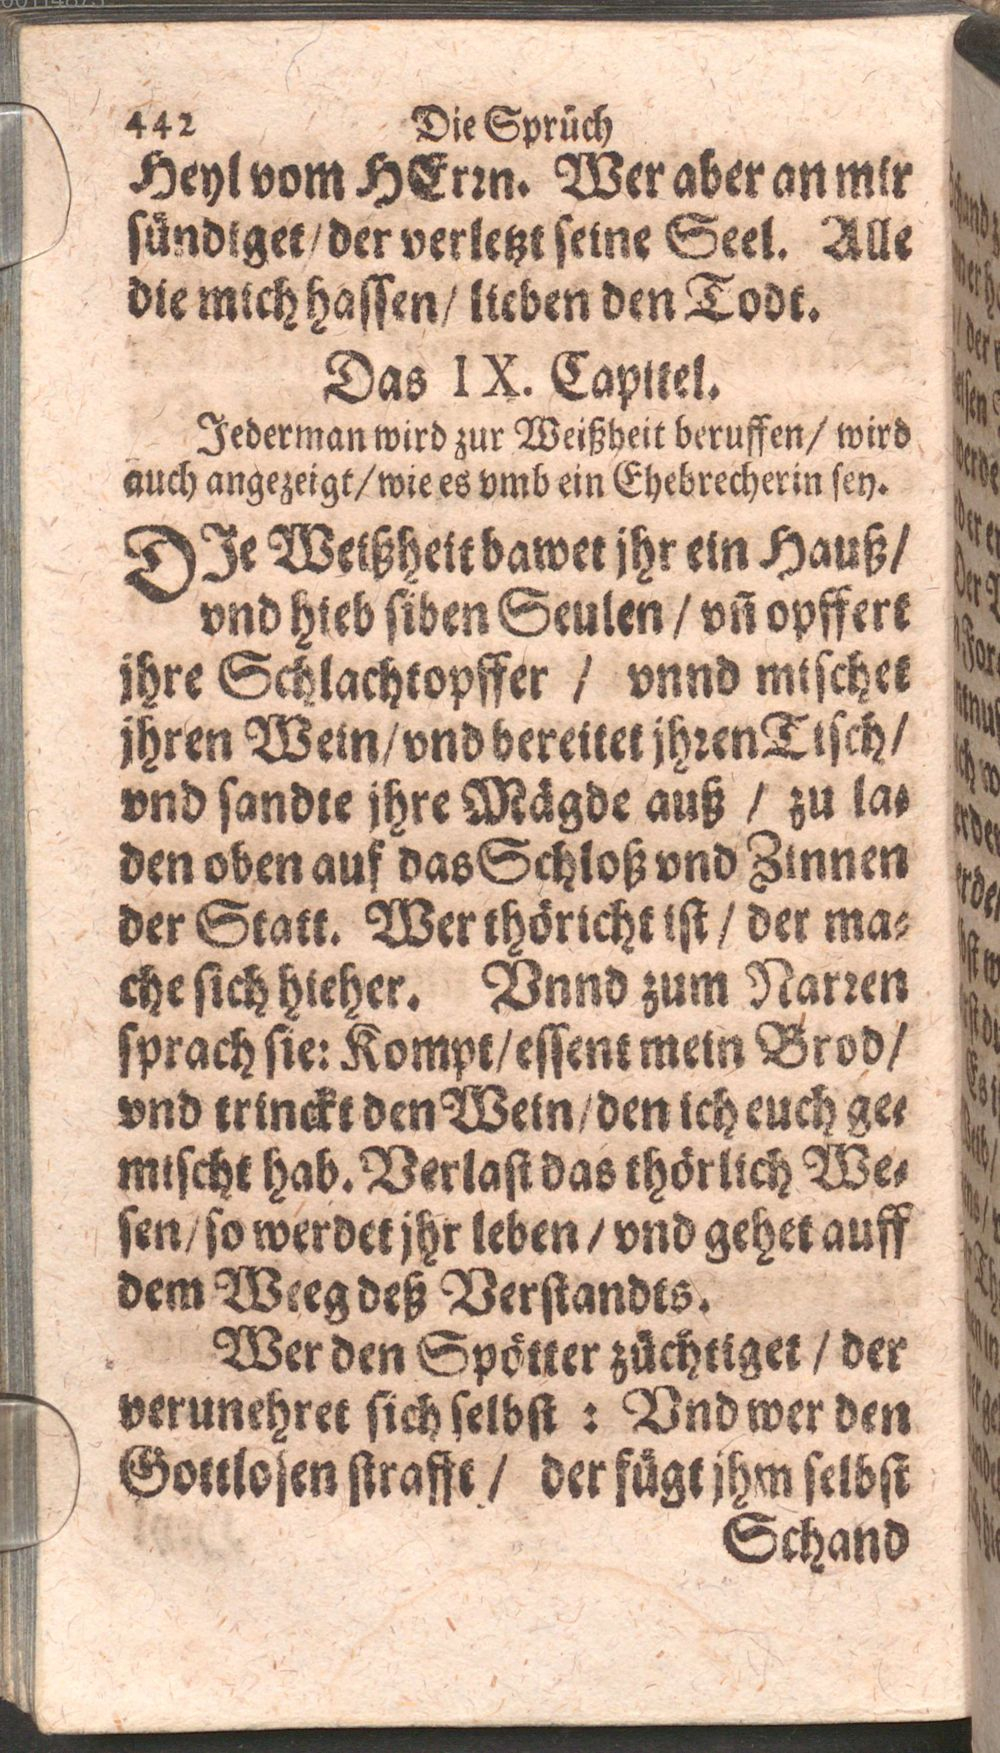 442 Die Sprüch
Heyl vom HErrn. Wer aber an mir
sündiget/ der verletzt seine Seel. Alle
die mich hassen/ lieben den Todt.
Das IX. Capitel.
Jederman wird zur Weißheit beruffen/ wird
auch angezeigt/ wie es vmb ein Ehebrecherin sey.
DJe Weißheit bawet jhr ein Hauß/
vnd hieb siben Seulen / vñ opffert
jhre Schlachtopffer / vnnd mischet
jhren Wein/ vnd bereitet jhren Tisch/
vnd sandte jhre Mägde auß / zu la-
den oben auf das Schloß vnd Zinnen
der Statt. Wer thöricht ist / der ma-
che sich hieher. Vnnd zum Narren
sprach sie: Kompt/ essent mein Brod/
vnd trinckt den Wein/ den ich euch ge-
mischt hab. Verlast das thörlich We-
sen/ so werdet jhr leben / vnd gehet auff
dem Weeg deß Verstandts.
Wer den Spötter züchtiget / der
verunehret sich selbst : Vnd wer den
Gottlosen strafft / der fügt jhm selbst
Schand